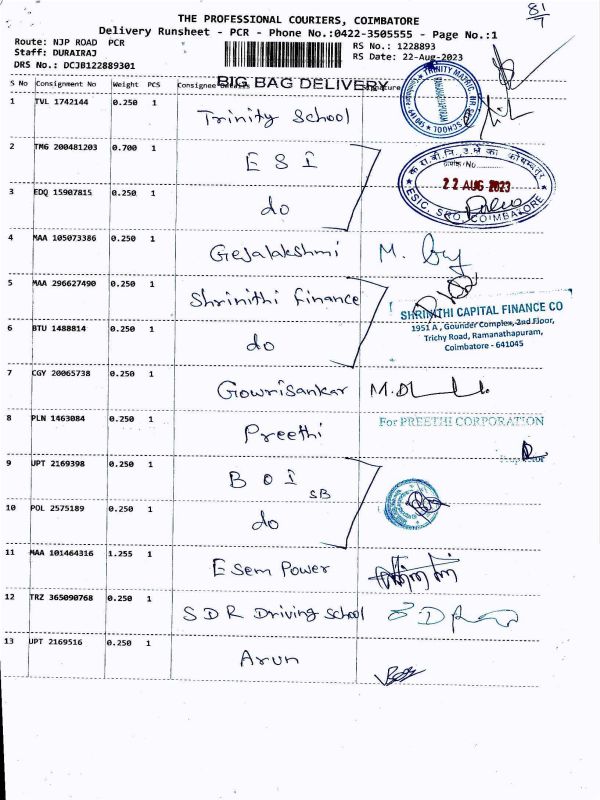 81/7
THE PROFESSIONAL COURIERS, COIMBATORE
Delivery Runsheet - PCR - Phone No.:0422-3505555 - Page No.:1
Route: NJP ROAD PCR
Staff: DURAIRAJ
DRS No.: DCJB122889301
RS No.: 1228893
RS Date: 22-Aug-2023
BIG BAG DELIVERY
S No Consignment No Weight PCS Consignee Details Signature
1 TVL 1742144 0.250 1 Trinity School
TRINITY MATRIC HR SCHOOL
2 TMG 200481203 0.700 1 E S I
22 AUG 2023
ESIC, SRO, COIMBATORE
3 EDQ 15907815 0.250 1 do
4 MAA 105073386 0.250 1 Gejalakshmi M.
5 MAA 296627490 0.250 1 Shrinithi Finance
SHRINITHI CAPITAL FINANCE CO
1951 A, Gounder Complex, 2nd Floor,
Trichy Road, Ramanathapuram,
Coimbatore - 641045
6 BTU 1488814 0.250 1 do
7 CGY 20065738 0.250 1 Gowrisankar M.D
8 PLN 1463084 0.250 1 Preethi
For PREETHI CORPORATION
Proprietor
9 UPT 2169398 0.250 1 B O I SB
10 POL 2575189 0.250 1 do
11 MAA 101464316 1.255 1 Esem Power
12 TRZ 365090768 0.250 1 SDR Driving School
13 UPT 2169516 0.250 1 Arun